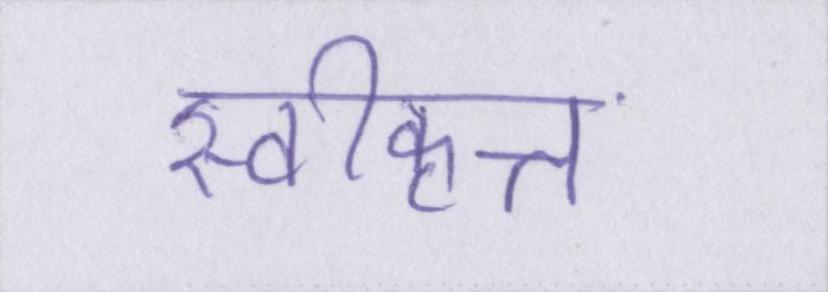 स्वीकृत्त